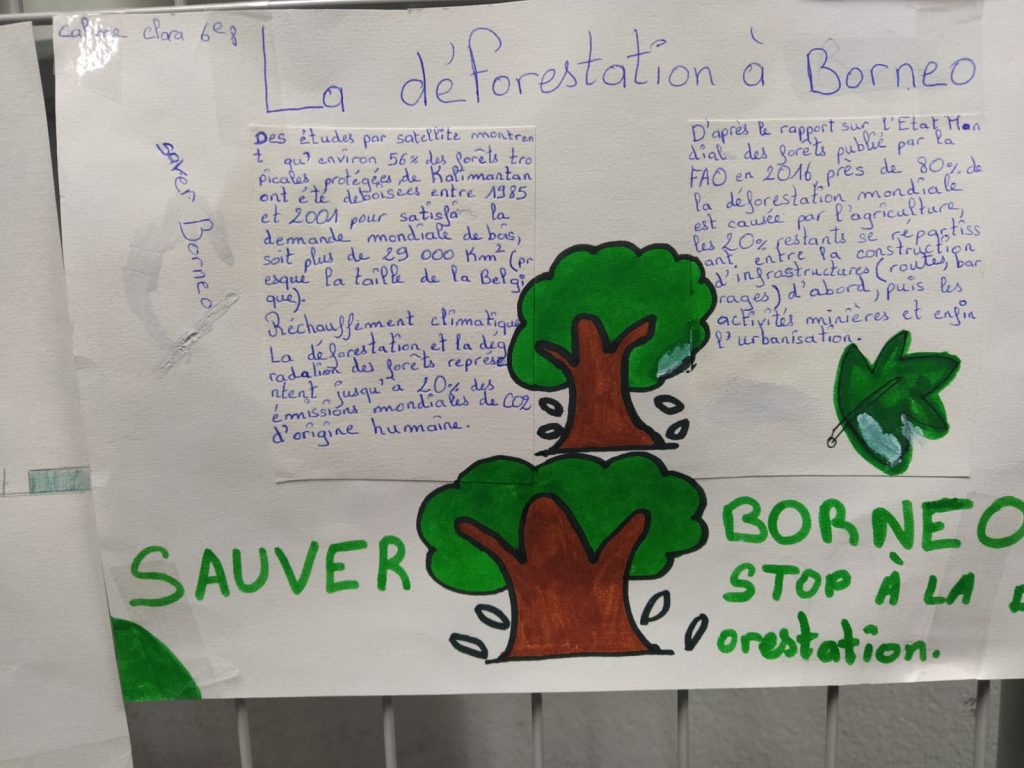 clara 6e8
La déforestation à Borneo
saver Borneo
Des études par satellite montren
t qu'environ 56% des forêts tro
picales protégées de Kalimantan
ont été deboisées entre 1985
et 2001 pour satisfa la
demande mondiale de bois,
soit plus de 29 000 Km² (pr
esque la taille de la Belgi
que).
Réchauffement climatique
La déforestation et la dég
radation des forêts représe
ntent jusqu'à 20% des
émissions mondiales de CO2
d'origine humaine.
D'après le rapport sur l'Etat Mon
dial des forêts publié par la
FAO en 2016, près de 80% de
la déforestation mondiale
est causée par l'agriculture,
les 20% restants se répartiss
ant entre la construction
d'infrastructures (routes, bar
rages) d'abord, puis les
activités minières et enfin
l'urbanisation.
SAUVER BORNEO
STOP À LA
orestation.